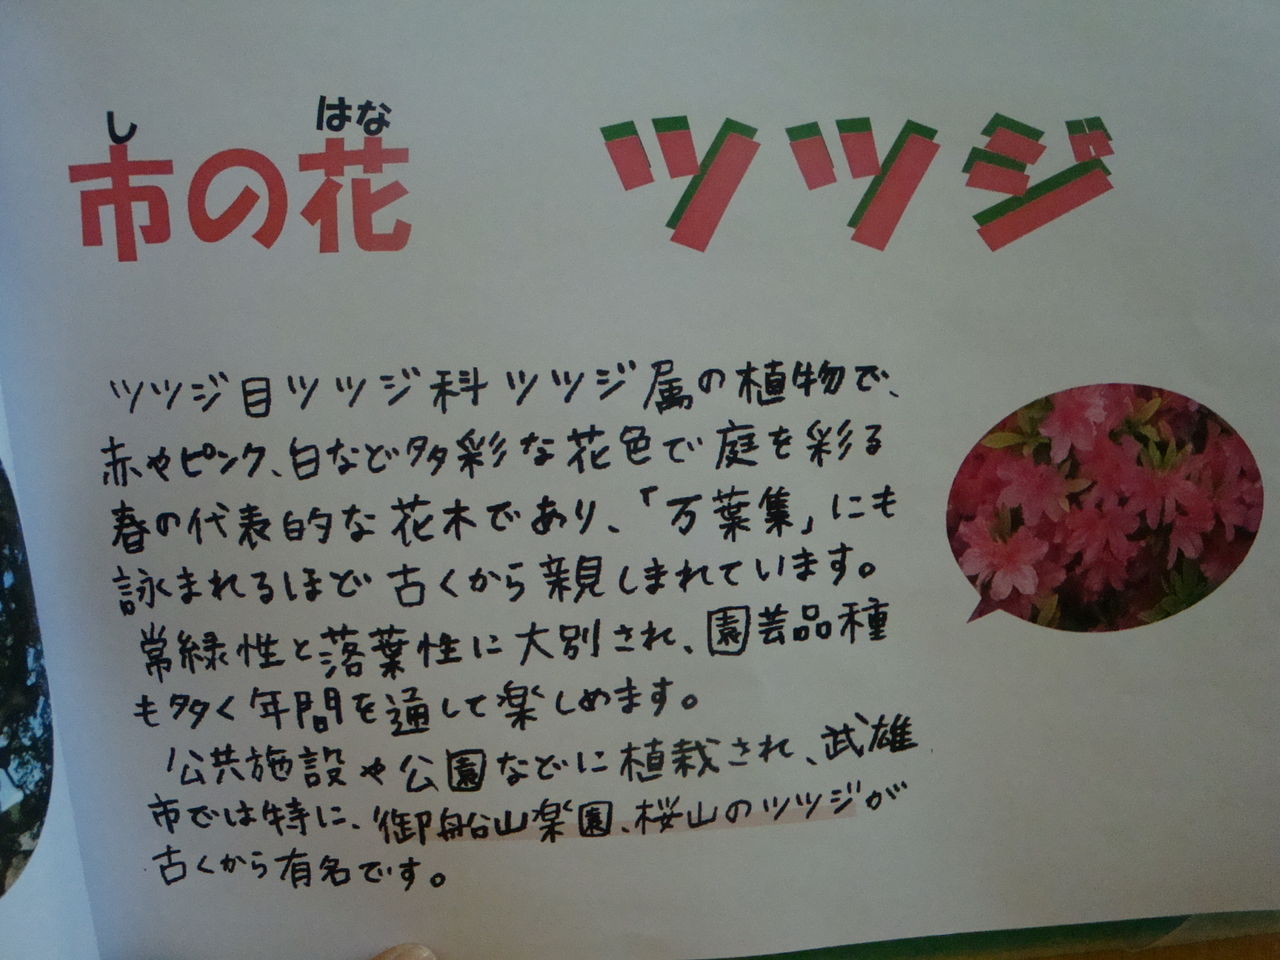 し はな
市の花 ツツジ
ツツジ目ツツジ科ツツジ属の植物で、
赤やピンク、白など多彩な花色で庭を彩る
春の代表的な花木であり、「万葉集」にも
詠まれるほど古くから親しまれています。
常緑性と落葉性に大別され、園芸品種
も多く年間を通して楽しめます。
公共施設や公園などに植栽され、武雄
市では特に、御船山楽園、桜山のツツジが
古くから有名です。